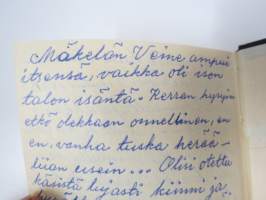 Mäkelän Veine ampui
itsensä, vaikka oli ison
talon isäntä. Kerran kysyin
etkö olekkaan onnellinen, en
en, vanha tuska herää-
liian usein... Olisi otettu
käsistä lujasti kiinni ja